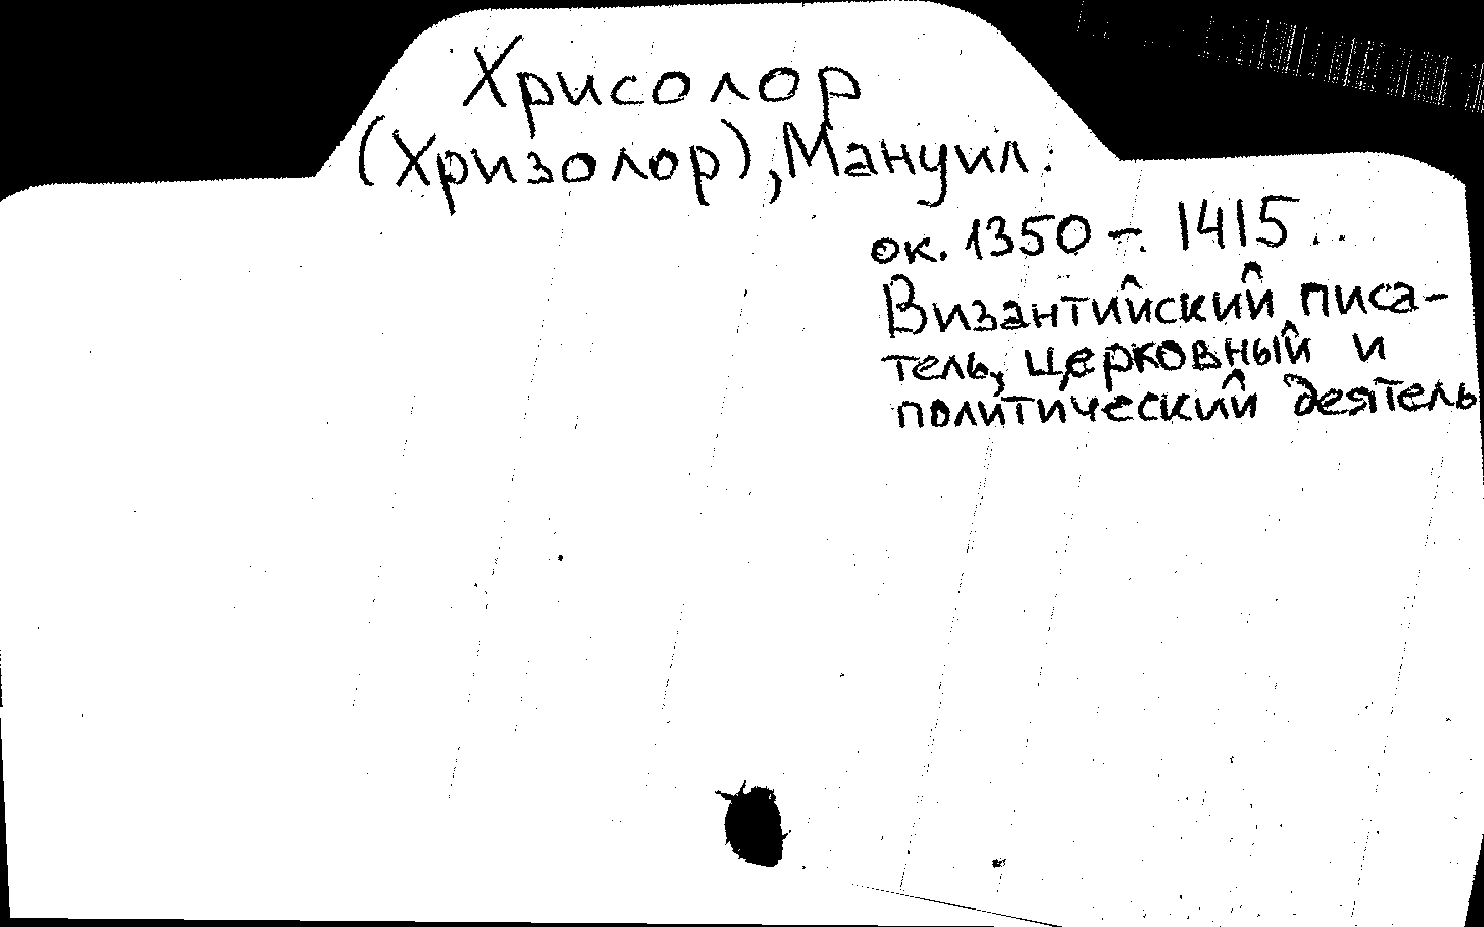 Хрисолор
(Хризолор), Мануил.
ок. 1350 – 1415..
Византийский писа-
тель, церковный и
политический деятель